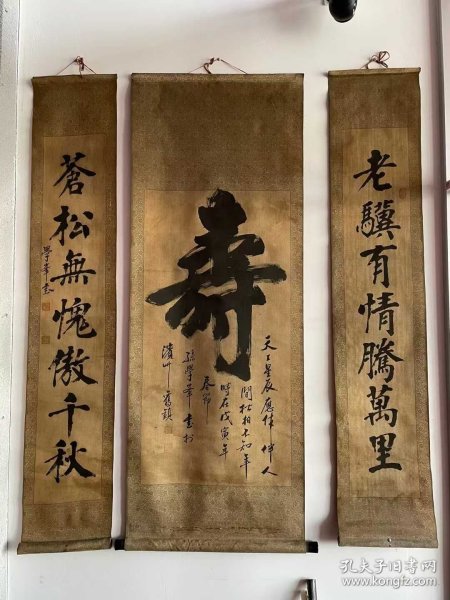 老驥有情騰萬里
壽
天上星辰應作伴人
間松柏不知年
時在戊寅年
春節
孫學峯書於
濱
蒼松無愧傲千秋
學峯書
孔夫子旧书网
www.kongfz.com